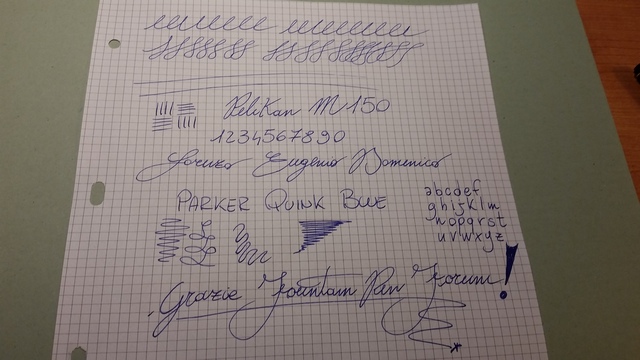 Pelikan M150
1234567890
Eugenio Domenico
PARKER QUINK BLUE
abcdef
ghijklm
nopqrst
uvwxyz
Grazie Fountain Pen Forum!